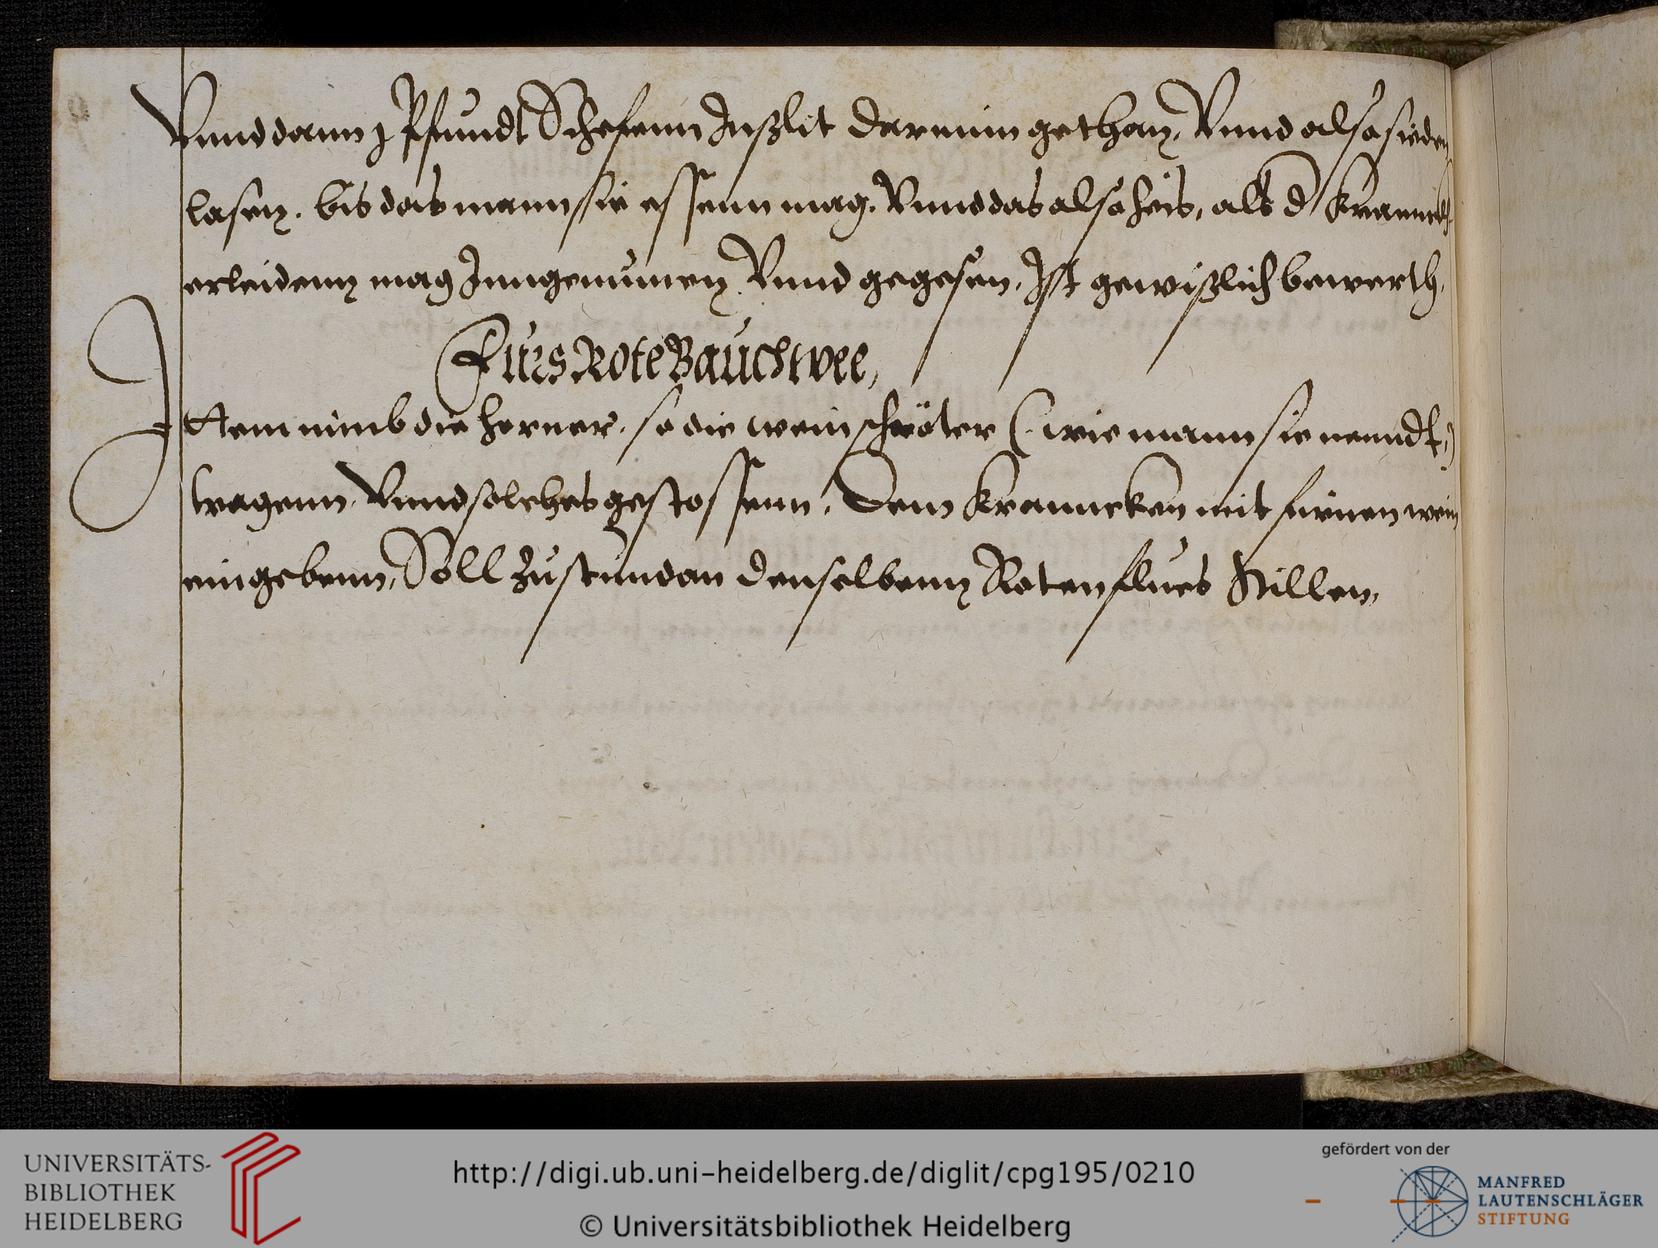 Vnnd dann j Pfundt Schefenn Jnßlit darinnn gethan, Vnnd also sieden
lasen, bis das mann sie essenn mag, Vnnd das also heis, als d Kranneck
erleidenn mag Jnngenumen Vnnd gegesen, Jst gewißlich bewerth,
Furs Rote Bauchwee,
Jttem nimb die horner, so die weinschröter (wie mann sie nenndt,)
tragenn, Vnnd solches gestossenn, Dem Krannecken mit firnen wein
eingebenn, Soll zustundan denselbenn Roten flues stillen,
UNIVERSITÄTS-
BIBLIOTHEK
HEIDELBERG
http://digi.ub.uni-heidelberg.de/diglit/cpg195/0210
© Universitätsbibliothek Heidelberg
gefördert von der
MANFRED
LAUTENSCHLÄGER
STIFTUNG